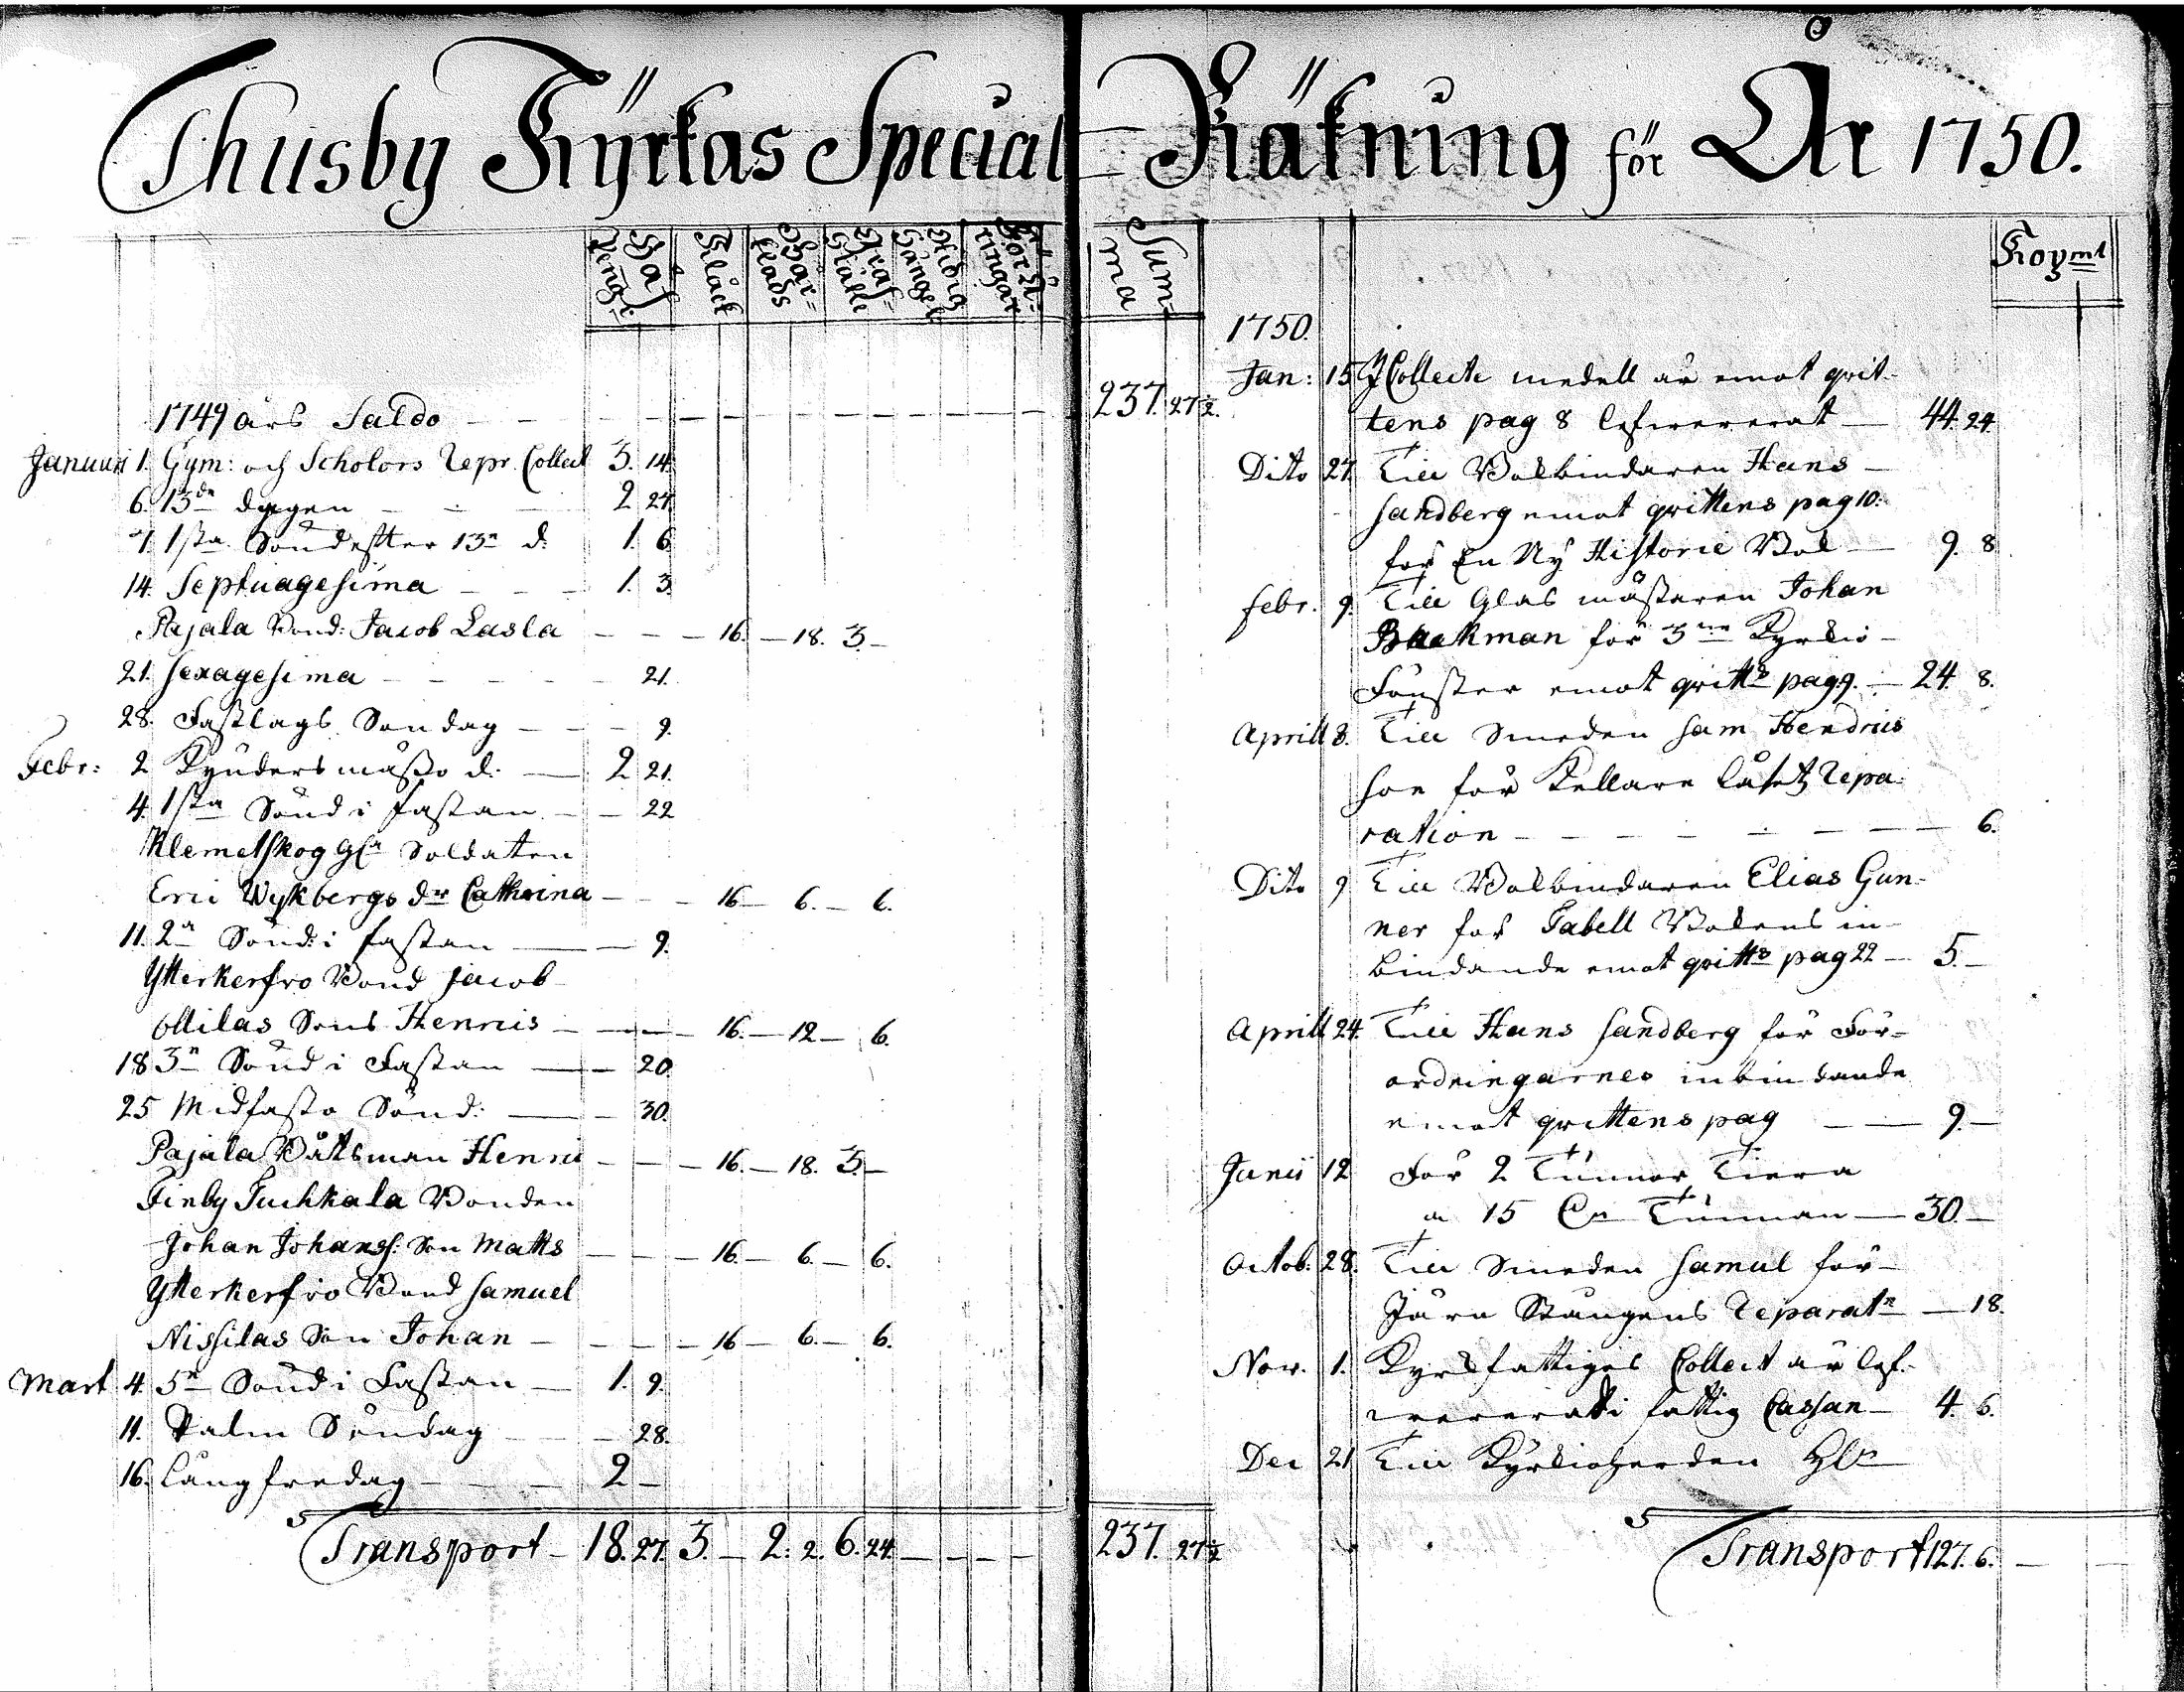 Thusby Kÿrkas Special-Räkning för År 1750.
Håf Penig:r
Klåck
Bår-klads
Graf-ställe
Sum-ma
Koymt
1749 års Saldo - - - - - 237. 27½.
Januari 1. Gym: och Scholors Repr. Collect 3. 14.
6. 13de dagen - - - 2 27.
7. 1sta Sönd efter 13n d: 1. 6
14. Septuagesima - - - 1. 3.
Pajala Bond: Jacob Lasla - - - 16. - 18. 3. -
21. Sexagesima - - - - - 21.
28. Fastlags Söndag - - - 9.
Febr: 2 Kÿndersmässo d: - 2 21.
4. 1sta Sönd i fastan - - 22
Klemetskog Soldaten
Eric Wykbergs dr Cathrina - - - 16 - 6. - 6.
11. 2n Sönd: i fastan - - 9.
Ytterkerfvo Bond Jacob
Ollilas Sons Henric - - - 16. - 12 - 6.
18 3n Sönd i Fastan - - 20.
25 Midfasto Sönd: - - 30.
Pajala Båtsman Henric - - - 16. - 18. 3. -
Finby Tuchkala Bonden
Johan Johanss: Son Matts - - - 16. - 6. - 6.
Ytterkerfvo Bond Samuel
Nissilas Son Johan - - - - 16 - 6. - 6.
Mart 4. 5n Sönd i Fastan - 1. 9.
11. Palm Söndag - - - 28.
16. Långfredag - - - 2 -
Transport - 18. 27. 3. - 2. 2. 6. 24. - - - - 237. 27½
1750.
Jan: 15 I Collecte medell är emot qvit-
tens pag 8 lefwererat - 44. 24.
Dito 27. Till Bokbindaren Hans -
Sandberg emot qvittens pag 10:
for En Nÿ Historie Bok - 9. 8
Febr. 9. Till Glas mästaren Johan
Backman för 3ne Kyrkio -
Fönster emot qvitts pag. 9. - 24. 8.
Aprill 8. Till Smeden Sam Hendrics
son för Kellare Låsetz Repa-
ration - - - - - - - 6.
Dito 9 Till Bokbindaren Elias Gun-
ner for Tabell Bokens in-
bindande emot qvitts pag 22 - 5. -
Aprill 24. Till Hans Sandberg för För-
ordningarnes inbindande
emot qvittens pag - - 9. -
Junii 12 För 2 Tunnor Tiera
a 15 Tunnan - 30. -
Octob: 28. Till Smeden Samuel för -
Järn Stångens Reparatn - 18.
Nov. 1. Kyrk fattiges Collect är lef-
wererat i fattig Cassan - 4. 6.
Dec 21 Till Kÿrkioherden
Transport 127. 6. -